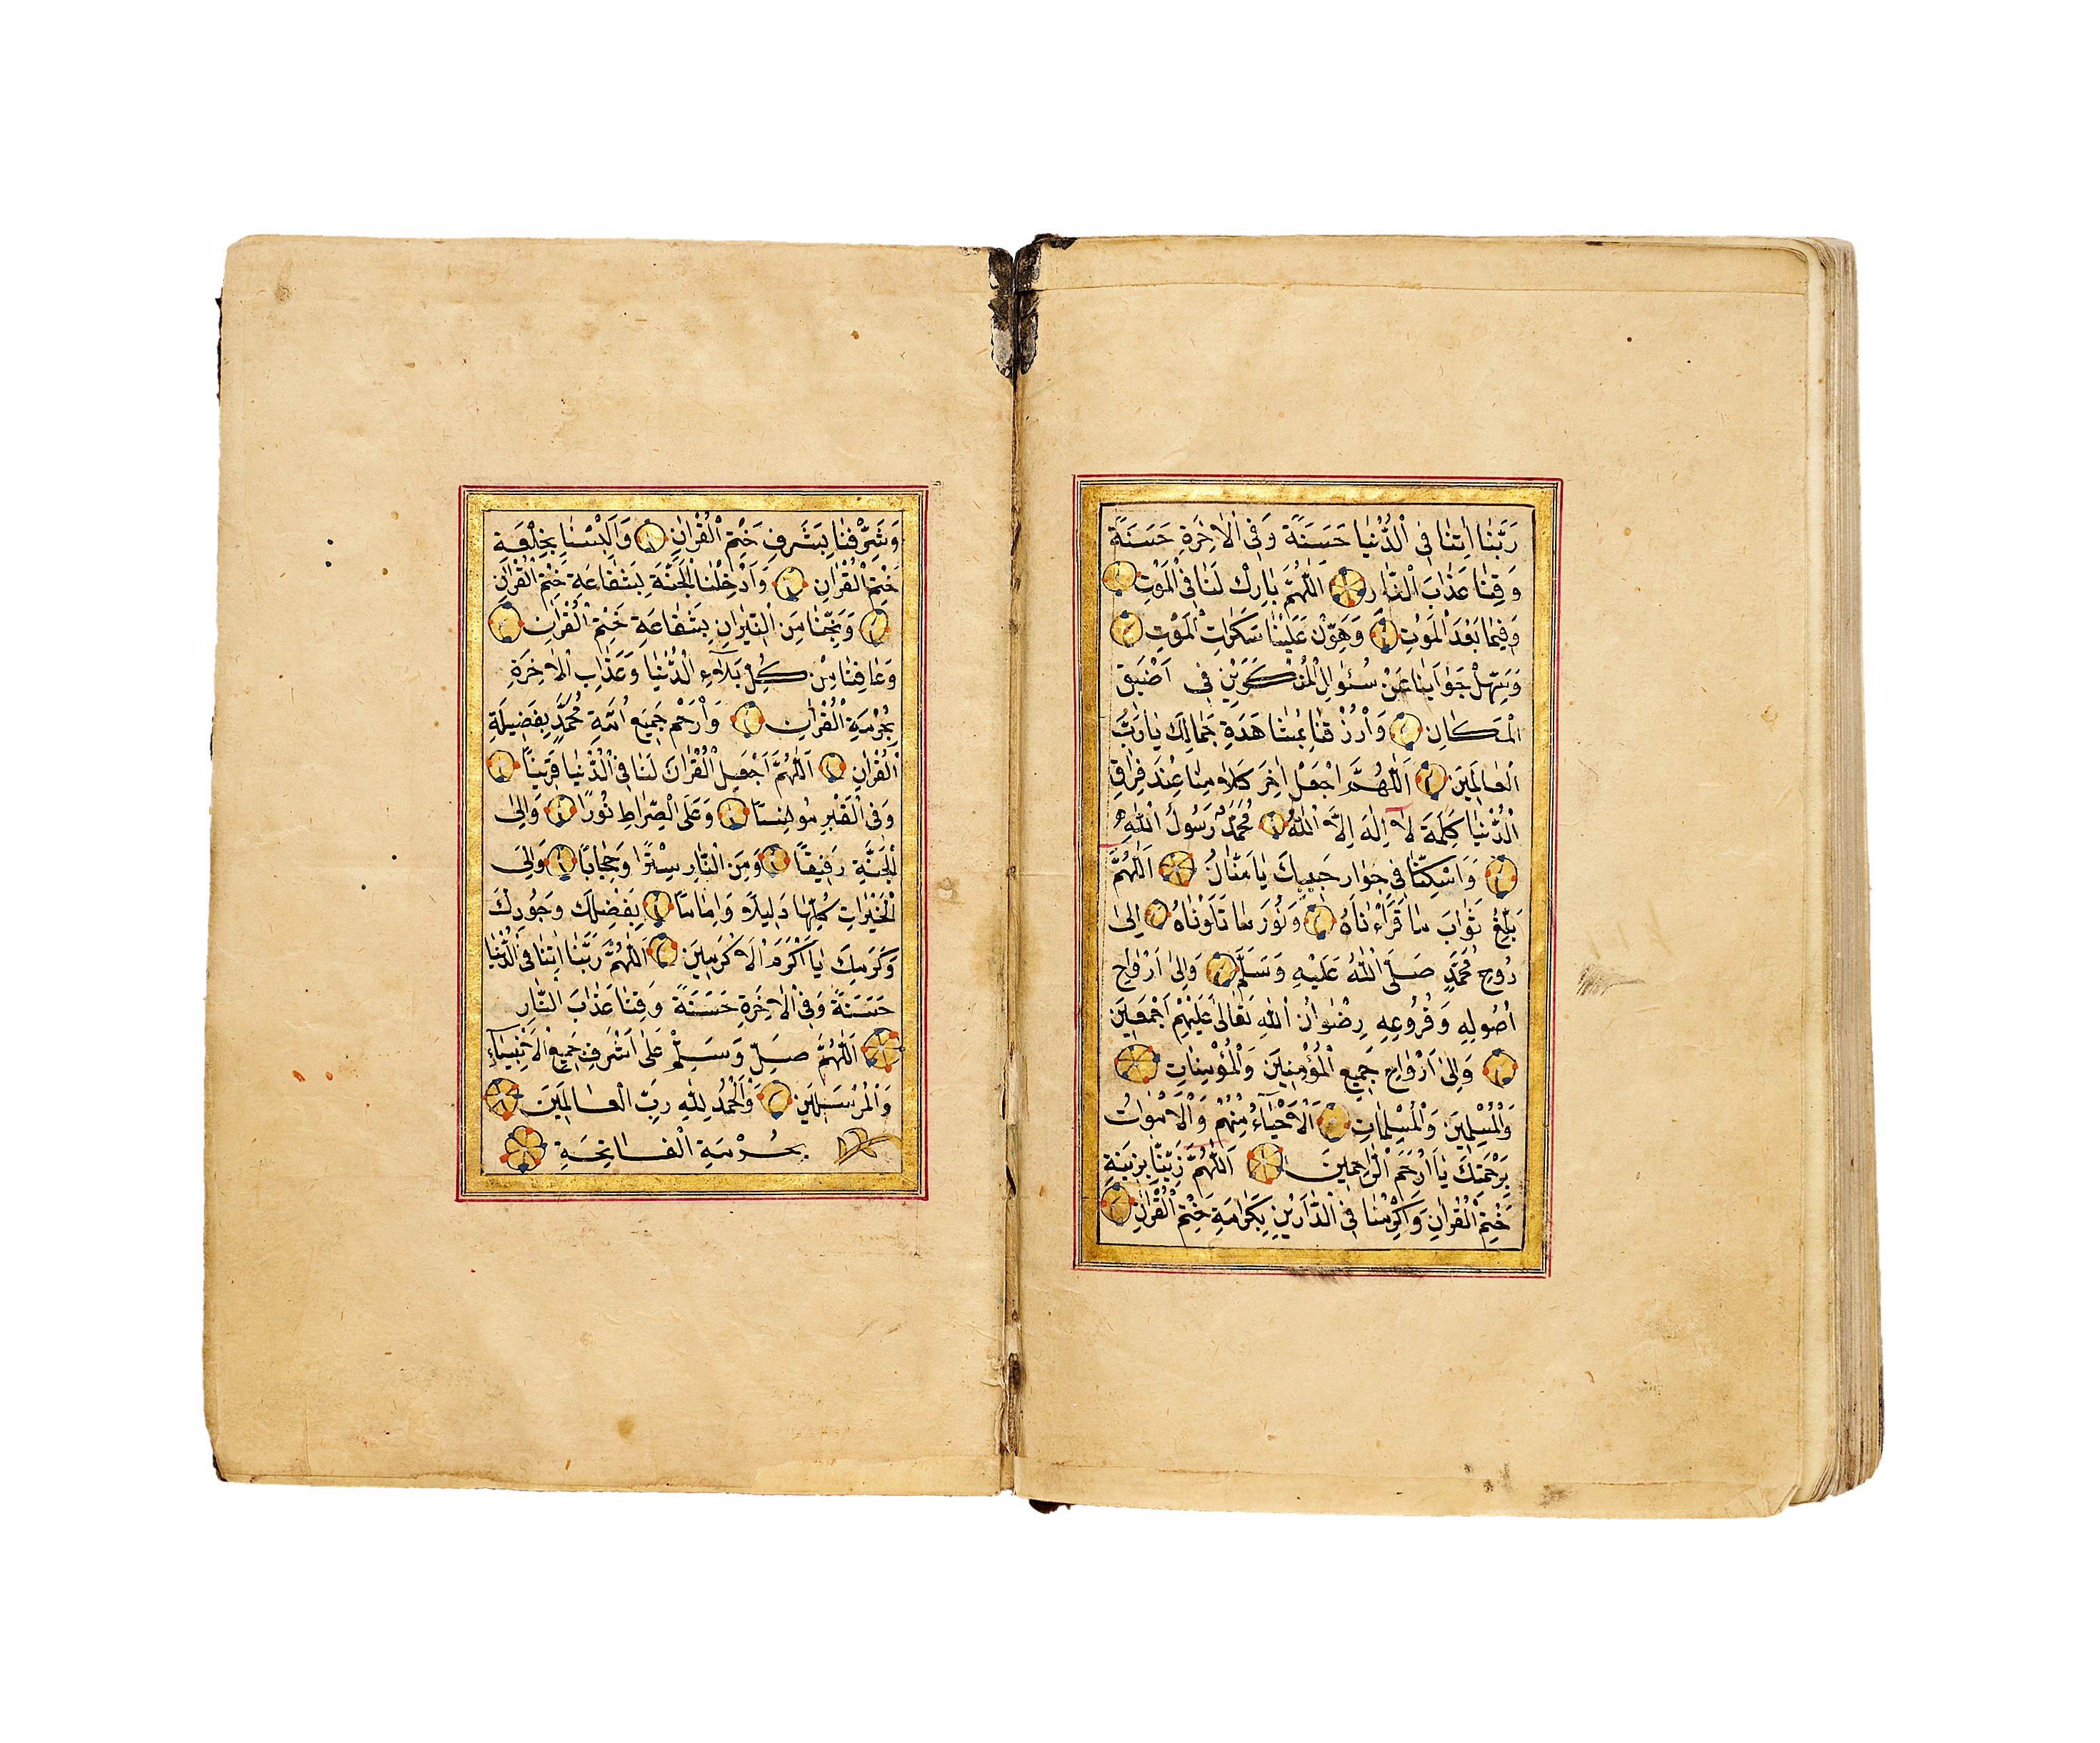 رَبَّنَا اٰتِنَا فِى الدُّنْيَا حَسَنَةً وَفِى الْاٰخِرَةِ حَسَنَةً
وَقِنَا عَذَابَ النَّارِ اَللّٰهُمَّ بَارِكْ لَنَا فِى الْمَوْتِ
وَفِيمَا بَعْدَ الْمَوْتِ وَهَوِّنْ عَلَيْنَا سَكَرَاتِ الْمَوْتِ
وَسَهِّلْ جَوَابَنَا عَنْ سُئَوالِ الْمُنْكَرَيْنِ فِى اَضْيَقِ
الْمَكَانِ وَارْزُقْنَا بِمُشَاهَدَةِ جَمَالِكَ يَا رَبَّ
الْعَالَمِينَ اَللّٰهُمَّ اجْعَلْ اٰخِرَ كَلَامِنَا عِنْدَ فِرَاقِ
الدُّنْيَا كَلِمَةَ لَا اِلٰهَ اِلَّا اللّٰهُ مُحَمَّدٌ رَسُولُ اللّٰهِ
وَاَسْكِنَّا فِى جِوَارِ حَبِيبِكَ يَا مَنَّانُ اَللّٰهُمَّ
بَلِّغْ ثَوَابَ مَا قَرَأْنَاهُ وَنُورَ مَا تَلَوْنَاهُ اِلٰى
رُوحِ مُحَمَّدٍ صَلَّى اللّٰهُ عَلَيْهِ وَسَلَّمَ وَاِلٰى اَرْوَاحِ
اُصُولِهِ وَفُرُوعِهِ رِضْوَانُ اللّٰهِ تَعَالٰى عَلَيْهِمْ اَجْمَعِينَ
وَاِلٰى اَرْوَاحِ جَمِيعِ الْمُؤْمِنِينَ وَالْمُؤْمِنَاتِ
وَالْمُسْلِمِينَ وَالْمُسْلِمَاتِ اَلْاَحْيَاءُ مِنْهُمْ وَالْاَمْوَاتُ
بِرَحْمَتِكَ يَا اَرْحَمَ الرَّاحِمِينَ اَللّٰهُمَّ زَيِّنَّا بِزِينَةِ
خَتْمِ الْقُرْاٰنِ وَاَكْرِمْنَا فِى الدَّارَيْنِ بِكَرَامَةِ خَتْمِ الْقُرْاٰنِ
وَشَرِّفْنَا بِشَرَفِ خَتْمِ الْقُرْاٰنِ وَاَلْبِسْنَا بِخِلْعَةِ
خَتْمِ الْقُرْاٰنِ وَاَدْخِلْنَا الْجَنَّةَ بِشَفَاعَةِ خَتْمِ الْقُرْاٰنِ
وَنَجِّنَا مِنَ النِّيرَانِ بِشَفَاعَةِ خَتْمِ الْقُرْاٰنِ
وَعَافِنَا مِنْ كُلِّ بَلَاءِ الدُّنْيَا وَعَذَابِ الْاٰخِرَةِ
بِحُرْمَةِ الْقُرْاٰنِ وَارْحَمْ جَمِيعَ اُمَّةِ مُحَمَّدٍ بِفَضِيلَةِ
الْقُرْاٰنِ اَللّٰهُمَّ اجْعَلِ الْقُرْاٰنَ لَنَا فِى الدُّنْيَا قَرِينًا
وَفِى الْقَبْرِ مُونِسًا وَعَلَى الصِّرَاطِ نُورًا وَاِلَى
الْجَنَّةِ رَفِيقًا وَمِنَ النَّارِ سِتْرًا وَحِجَابًا وَاِلَى
الْخَيْرَاتِ كُلِّهَا دَلِيلًا وَاِمَامًا بِفَضْلِكَ وَجُودِكَ
وَكَرَمِكَ يَا اَكْرَمَ الْاَكْرَمِينَ اَللّٰهُمَّ رَبَّنَا اٰتِنَا فِى الدُّنْيَا
حَسَنَةً وَفِى الْاٰخِرَةِ حَسَنَةً وَقِنَا عَذَابَ النَّارِ
اَللّٰهُمَّ صَلِّ وَسَلِّمْ عَلٰى اَشْرَفِ جَمِيعِ الْاَنْبِيَاءِ
وَالْمُرْسَلِينَ وَالْحَمْدُ لِلّٰهِ رَبِّ الْعَالَمِينَ
بِحُرْمَةِ الْفَاتِحَةِ